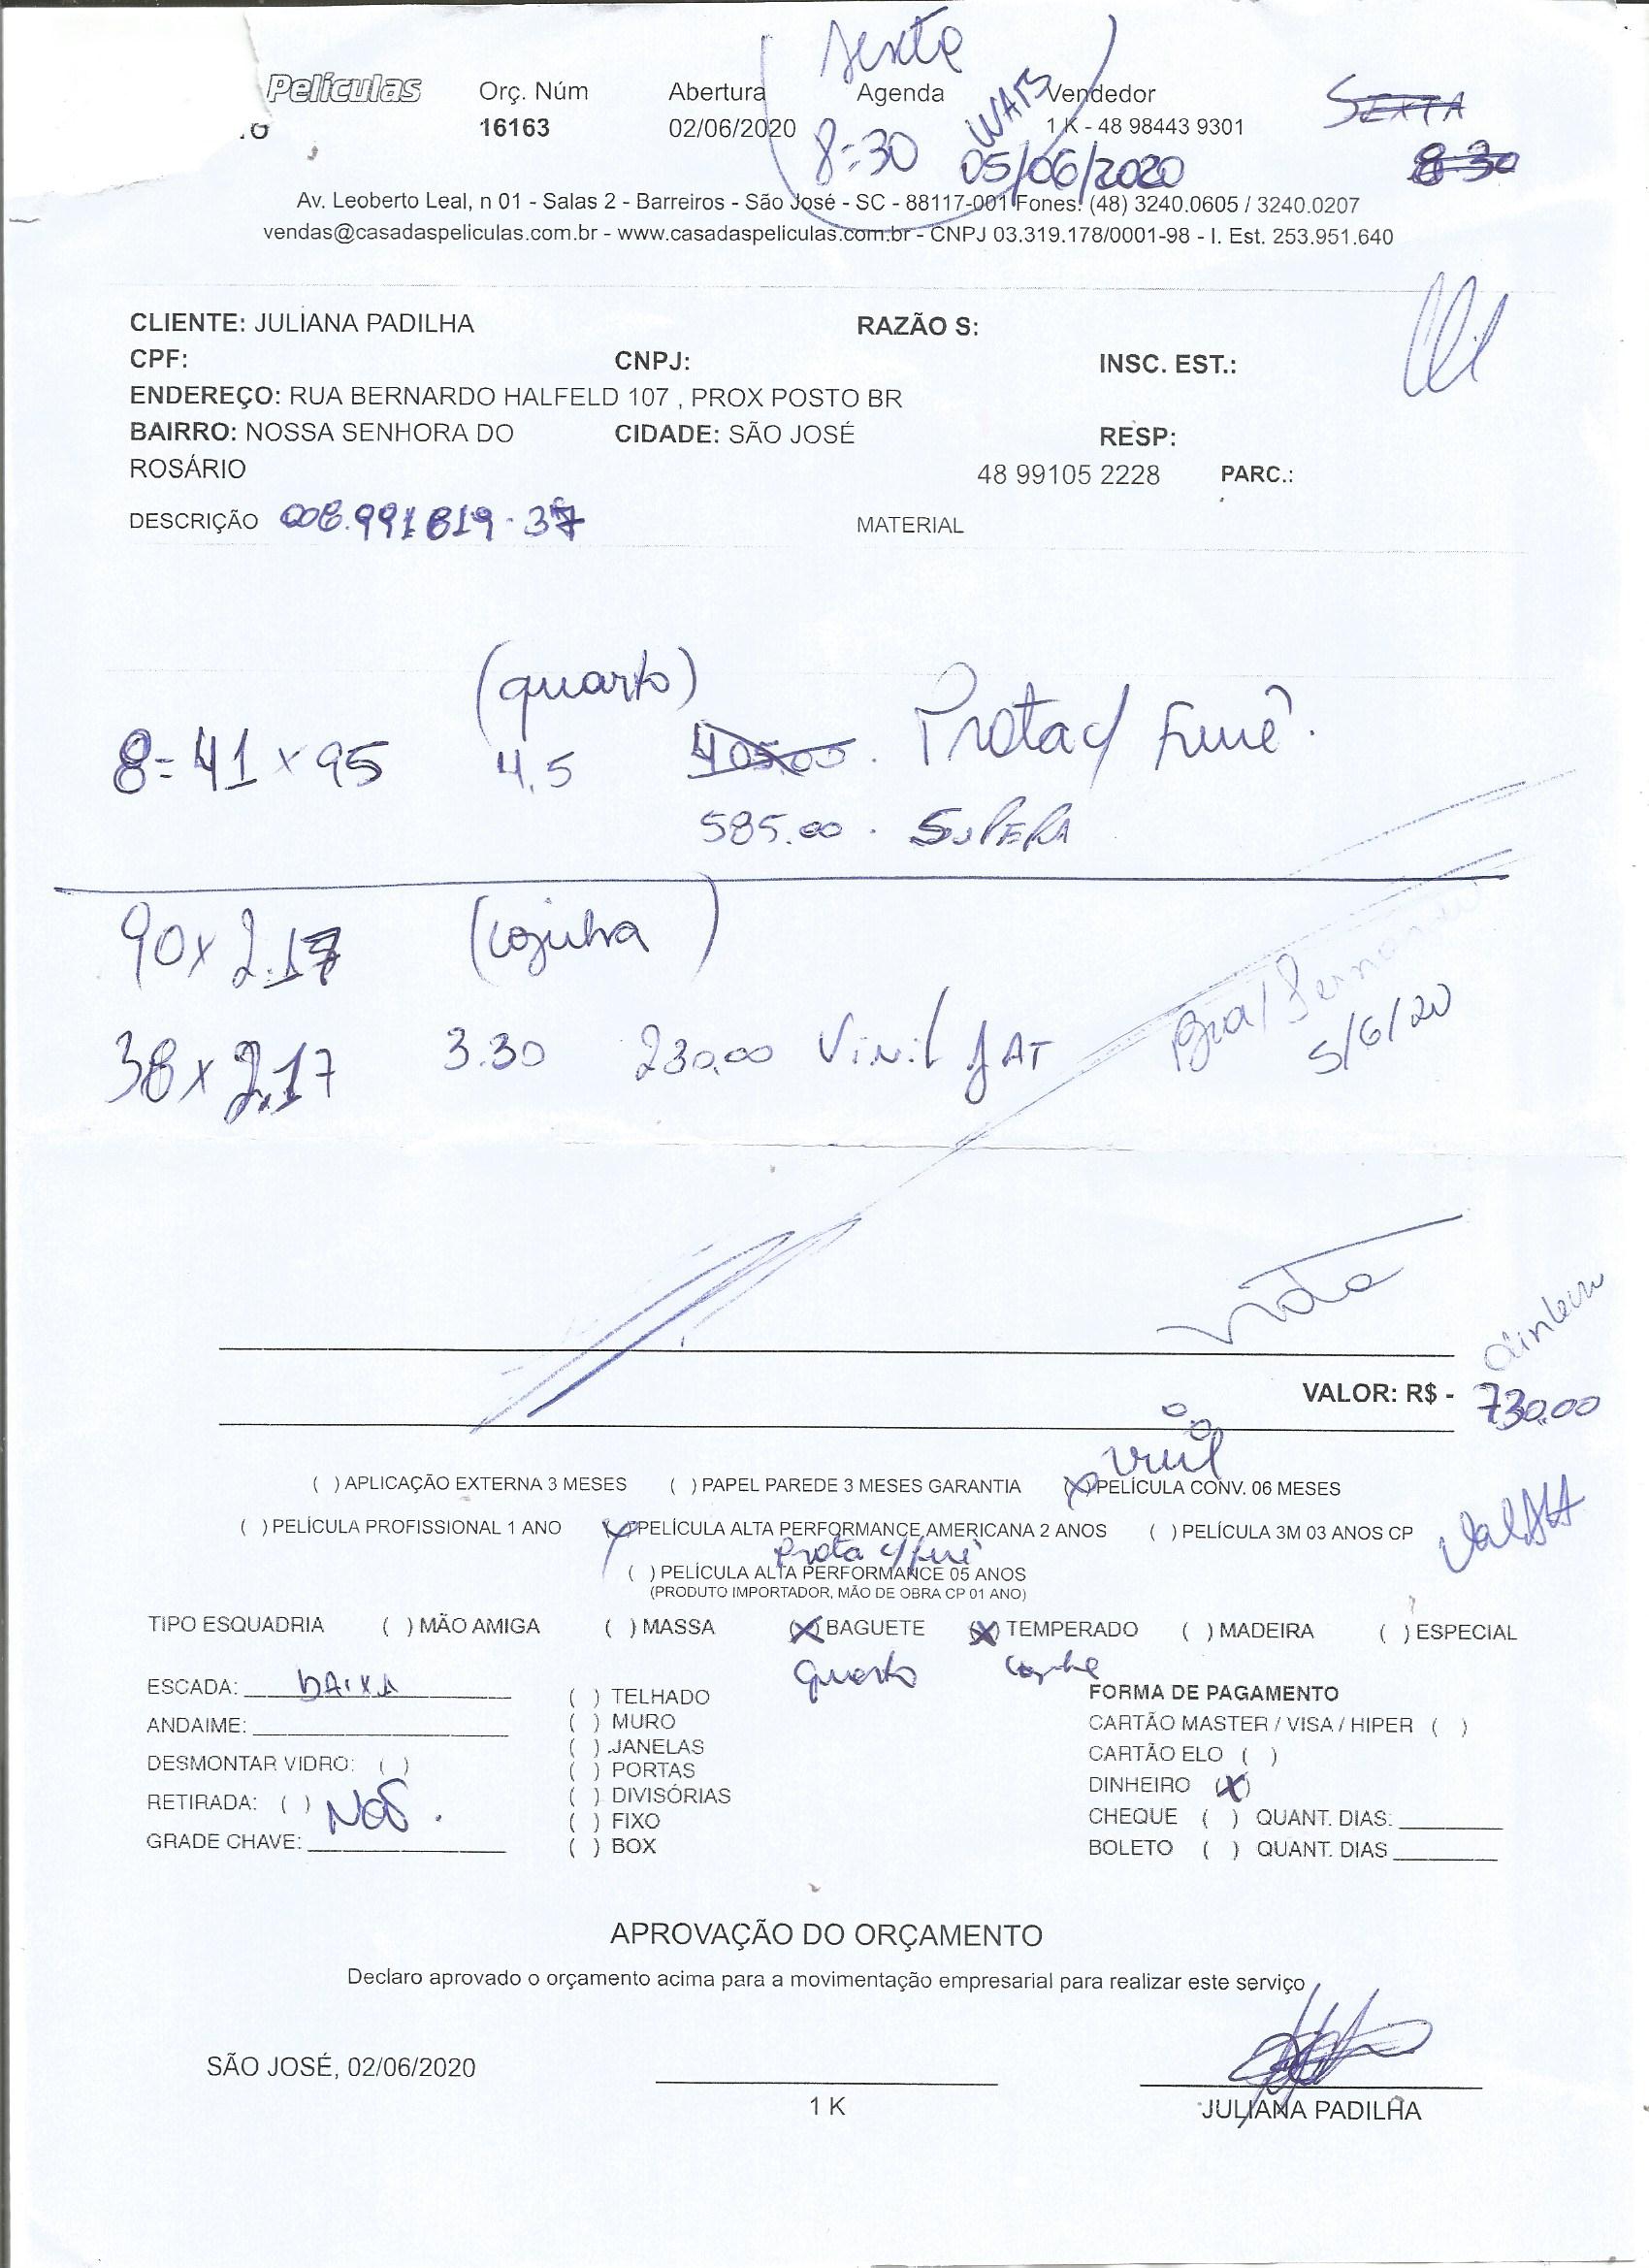 sexta
Películas Orç. Núm Abertura Agenda Vendedor SEXTA
16163 02/06/2020 8:30 1 K - 48 98443 9301 8:30
05/06/2020
Av. Leoberto Leal, n 01 - Salas 2 - Barreiros - São José - SC - 88117-001 Fones: (48) 3240.0605 / 3240.0207
vendas@casadaspeliculas.com.br - www.casadaspeliculas.com.br - CNPJ 03.319.178/0001-98 - I. Est. 253.951.640
CLIENTE: JULIANA PADILHA RAZÃO S:
CPF: CNPJ: INSC. EST.:
ENDEREÇO: RUA BERNARDO HALFELD 107 , PROX POSTO BR
BAIRRO: NOSSA SENHORA DO CIDADE: SÃO JOSÉ RESP:
ROSÁRIO 48 99105 2228 PARC.:
DESCRIÇÃO 008.991819-37 MATERIAL
(quarto)
8=41 x 95 4.5 405.00 . Prata c/ Fumê.
585.00 . SUPERA
90 x 2.17 (cozinha)
38 x 2.17 3.30 230,00 Vinil JAT
5/6/20
vista
dinheiro
VALOR: R$ - 730,00
vinil
( ) APLICAÇÃO EXTERNA 3 MESES ( ) PAPEL PAREDE 3 MESES GARANTIA (X) PELÍCULA CONV. 06 MESES
( ) PELÍCULA PROFISSIONAL 1 ANO (X) PELÍCULA ALTA PERFORMANCE AMERICANA 2 ANOS ( ) PELÍCULA 3M 03 ANOS CP
Prata c/ fumê
( ) PELÍCULA ALTA PERFORMANCE 05 ANOS
(PRODUTO IMPORTADOR, MÃO DE OBRA CP 01 ANO)
TIPO ESQUADRIA ( ) MÃO AMIGA ( ) MASSA (X) BAGUETE (X) TEMPERADO ( ) MADEIRA ( ) ESPECIAL
quarto
ESCADA: BAIXA
ANDAIME:
DESMONTAR VIDRO: ( )
RETIRADA: ( )
GRADE CHAVE:
( ) TELHADO
( ) MURO
( ) JANELAS
( ) PORTAS
( ) DIVISÓRIAS
( ) FIXO
( ) BOX
FORMA DE PAGAMENTO
CARTÃO MASTER / VISA / HIPER ( )
CARTÃO ELO ( )
DINHEIRO (X)
CHEQUE ( ) QUANT. DIAS:
BOLETO ( ) QUANT. DIAS
APROVAÇÃO DO ORÇAMENTO
Declaro aprovado o orçamento acima para a movimentação empresarial para realizar este serviço
SÃO JOSÉ, 02/06/2020
1 K JULIANA PADILHA